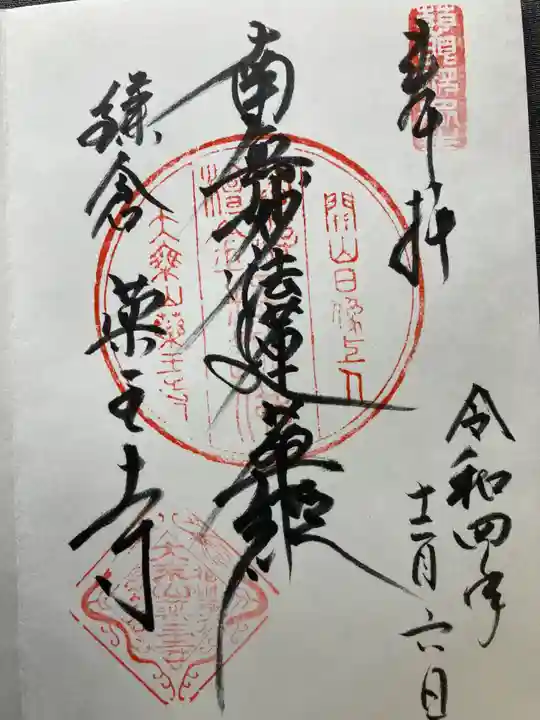 奉拝
南無妙法蓮華経
鎌倉 薬王寺
令和四年
十二月六日
開山日像上人
大乗山薬王寺
大乗山薬王寺